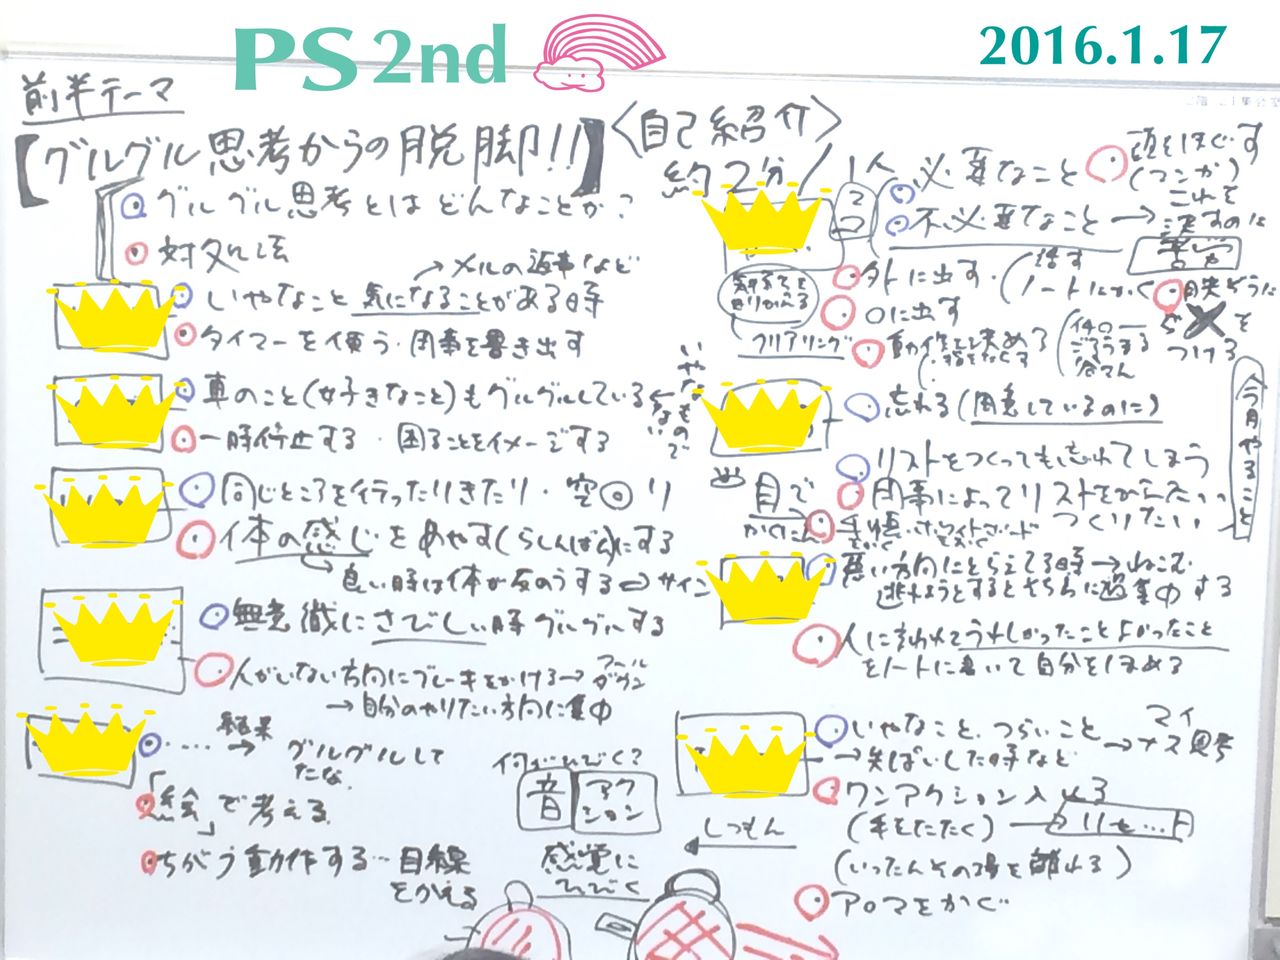 PS 2nd
2016.1.17
前半テーマ
【グルグル思考からの脱脚!!】
グルグル思考とはどんなことか?
対処法
→メルの返事など
いやなこと 気になることがある時
タイマーを使う・用事を書き出す
車のこと(好きなこと)もグルグルしている
いやなものでない
一時停止する・困ることをイメージする
同じところを行ったりきたり・空回り
体の感じをめやす(らしんばん)にする
良い時は体が反のうする⇒サイン
無意識にさびしい時グルグルする
人がいない方向にブレーキをかける→クールダウン
→自分のやりたい方向に集中
…. 結果→ グルグルして
たな
「絵」で考える
ちがう動作する…目線
をかえる
〈自己紹介〉
約2分/1人
必要なこと
不必要なこと→
頭をほぐす
(マンガ)
これを
決すのに
外に出す・(話す
ノートにかく
口に出す
クリアリング
動作を決める
つける
忘れる(用意しているのに)
今月やること
リストをつくっても忘れてしまう
用事によってリストを
つくりたい
目で
かくにん
手帳・ホワイトボード
悪い方向にとらえてる時→
逃げようとするとそちらに過集中する
人に言われてうれしかったことよかったこと
をノートに書いて自分をほめる
いやなこと、つらいこと→マイナス思考
→失ぱいした時など
ワンアクション入れる
(手をたたく)→リセット
(いったんその場を離れる)
アロマをかぐ
何がひびく?
音 アクション
感覚に
ひびく
しつもん